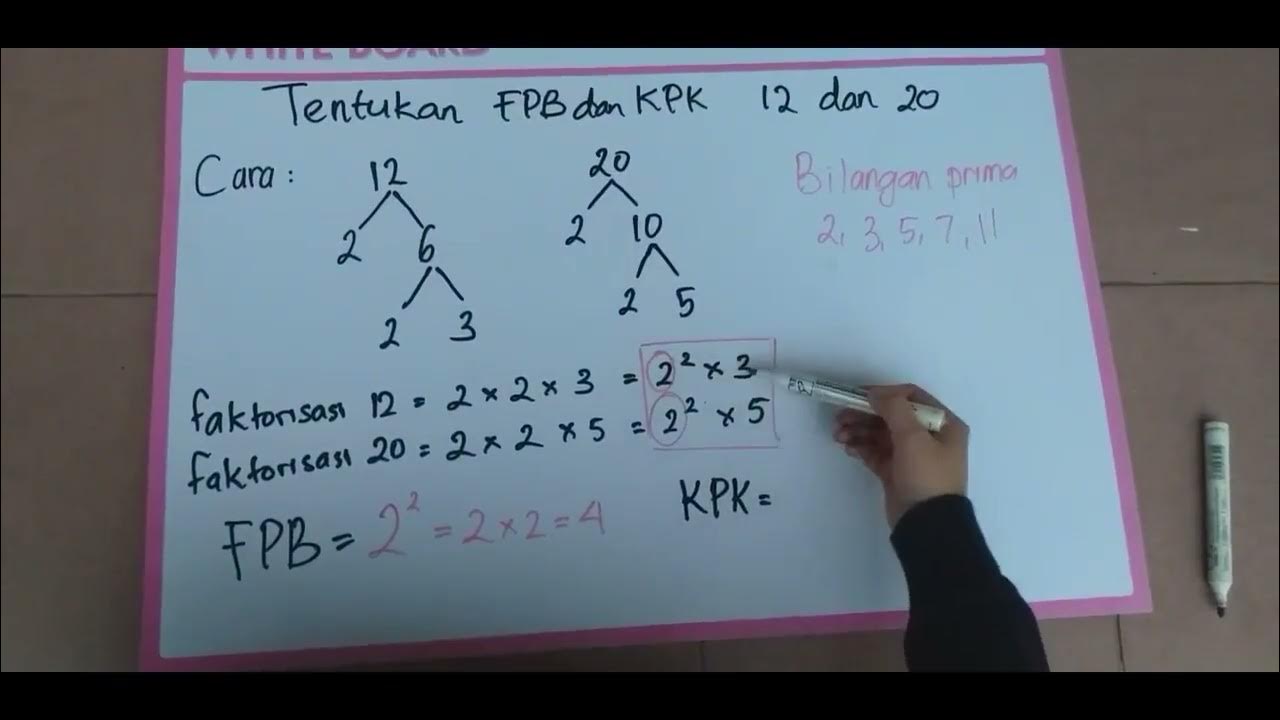 WHITE BOARD
Tentukan FPB dan KPK 12 dan 20
Cara :
12
2 6
2 3
20
2 10
2 5
Bilangan prima
2, 3, 5, 7, 11
faktorisasi 12 = 2 × 2 × 3 = 2² × 3
faktorisasi 20 = 2 × 2 × 5 = 2² × 5
FPB = 2² = 2 × 2 = 4
KPK =